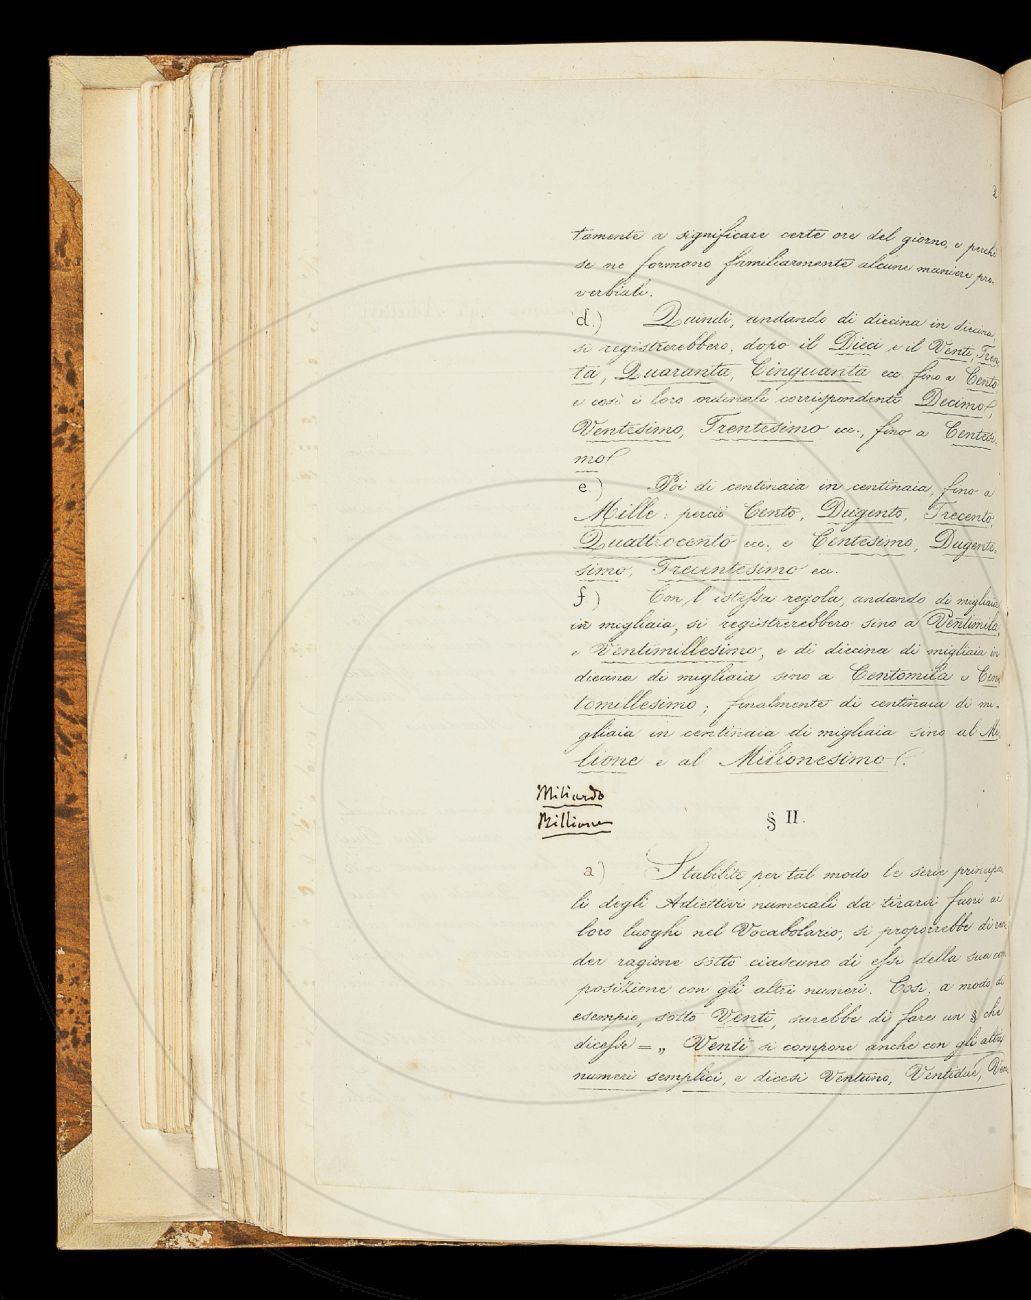 2
tamente a significare certe ore del giorno, e perchè
se ne formano familiarmente alcune maniere pro-
verbiali.
d.) Quindi, andando di diecina in diecina,
si registrerebbero, dopo il Dieci e il Venti, Tren
ta, Quaranta, Cinquanta ecc. fino a Cento
e così i loro ordinali corrispondenti Decimo,
Ventesimo, Trentesimo ecc., fino a Centesi-
mo
e.) Poi di centinaia in centinaia, fino a
Mille: perciò Cento, Dugento, Trecento,
Quattrocento ecc., e Centesimo, Dugente-
simo, Trecentesimo ecc.
f) Con l'istessa regola, andando di migliaia
in migliaia, si registrerebbero sino a Ventimila,
e Ventimillesimo, e di diecina di migliaia in
diecina di migliaia sino a Centomila e Cen
tomillesimo; finalmente di centinaia di mi-
gliaia in centinaia di migliaia sino al Mi
lione e al Milionesimo.
Miliardo
Billione
§ II.
a) Stabilite per tal modo le serie principa
li degli Adiettivi numerali da tirarsi fuori ai
loro luoghi nel Vocabolario, si proporrebbe di ren
der ragione sotto ciascuno di essi della sua com
posizione con gli altri numeri. Così, a modo di
esempio, sotto Venti, sarebbe di fare un § che
dicesse = „ Venti si compone anche con gli altri
numeri semplici, e dicesi Ventuno, Ventidue, Ven